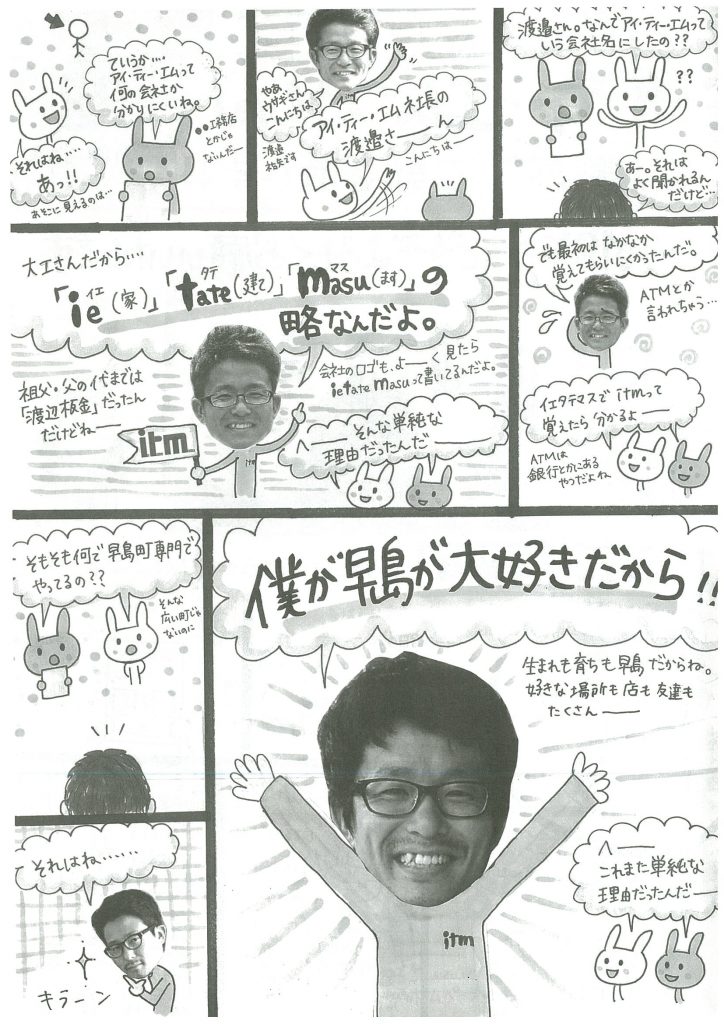 ていうか…
アイ・ティー・エムって
何の会社か
分かりにくいね。
工務店
とかじゃ
ないんだー
それはね……
あっ!!
あそこに見えるのは…
やあ
ウサギさん
こんにちは
渡邉
裕兵です
アイ・ティー・エム社長の
渡邉さーーん
こんにちはー
渡邉さん。なんでアイ・ティー・エムって
いう会社名にしたの??
??
あー。それは
よく聞かれるん
だけど…
大工さんだから…
イエ タテ マス
「ie(家)」「tate(建て)」「masu(ます)」の
略なんだよ。
会社のロゴも、よーーく見たら
ie tate masuって書いてるんだよ。
祖父・父の代までは
「渡辺板金」だったん
だけどねー
itm
itm
へーー そんな単純な
理由だったんだー
でも最初は なかなか
覚えてもらいにくかったんだ。
ATMとか
言われちゃう…
イエタテマスで itmって
覚えたら 分かるよー
ATMは
銀行とかにある
やつだよね
そもそも何で早島町専門で
やってるの??
そんな
広い町じゃ
ないのに
それはね……
キラーン
僕が早島が大好きだから!!
生まれも育ちも早島だからね。
好きな場所も店も友達も
たくさんーー
itm
へーー
これまた単純な
理由だったんだー